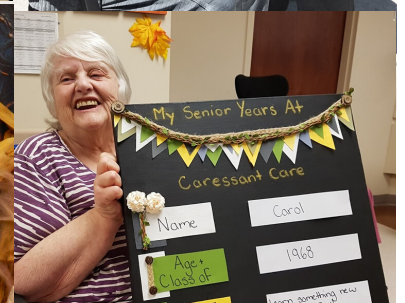 My Senior Years At
Caressant Care
Name
Carol
Age +
Class of
1968
Learn something new